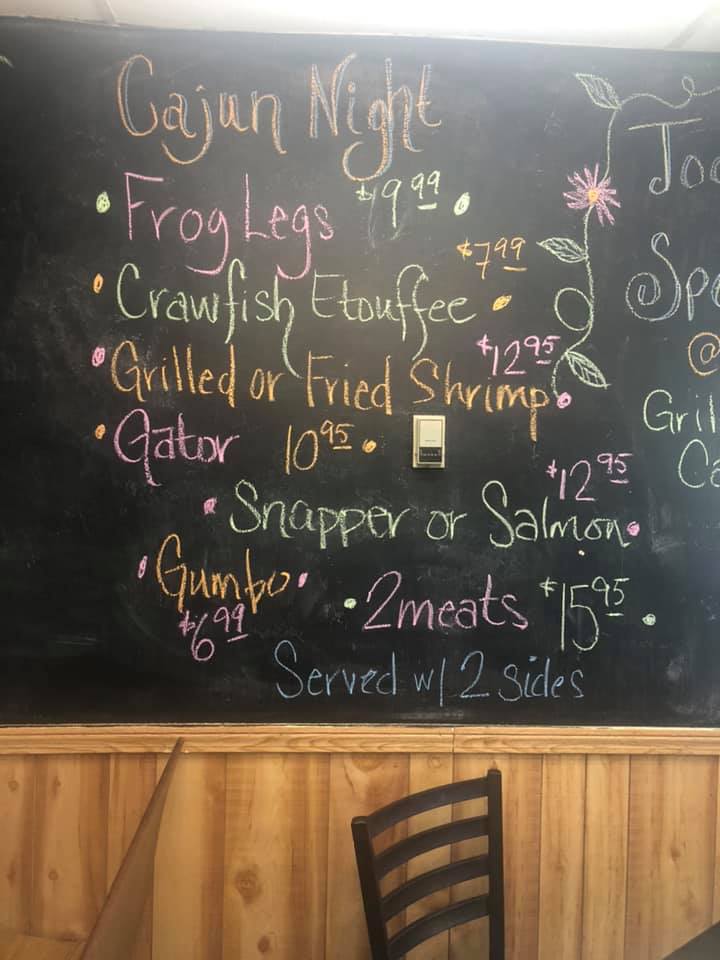 Cajun Night
• Frog Legs $9.99 •
$7.99
• Crawfish Etouffee •
$12.95
• Grilled or Fried Shrimp •
• Gator 10.95 •
$12.95
• Snapper or Salmon •
• Gumbo •
$6.99
• 2 meats $15.95 •
Served w/ 2 sides
@
Gril
Ca